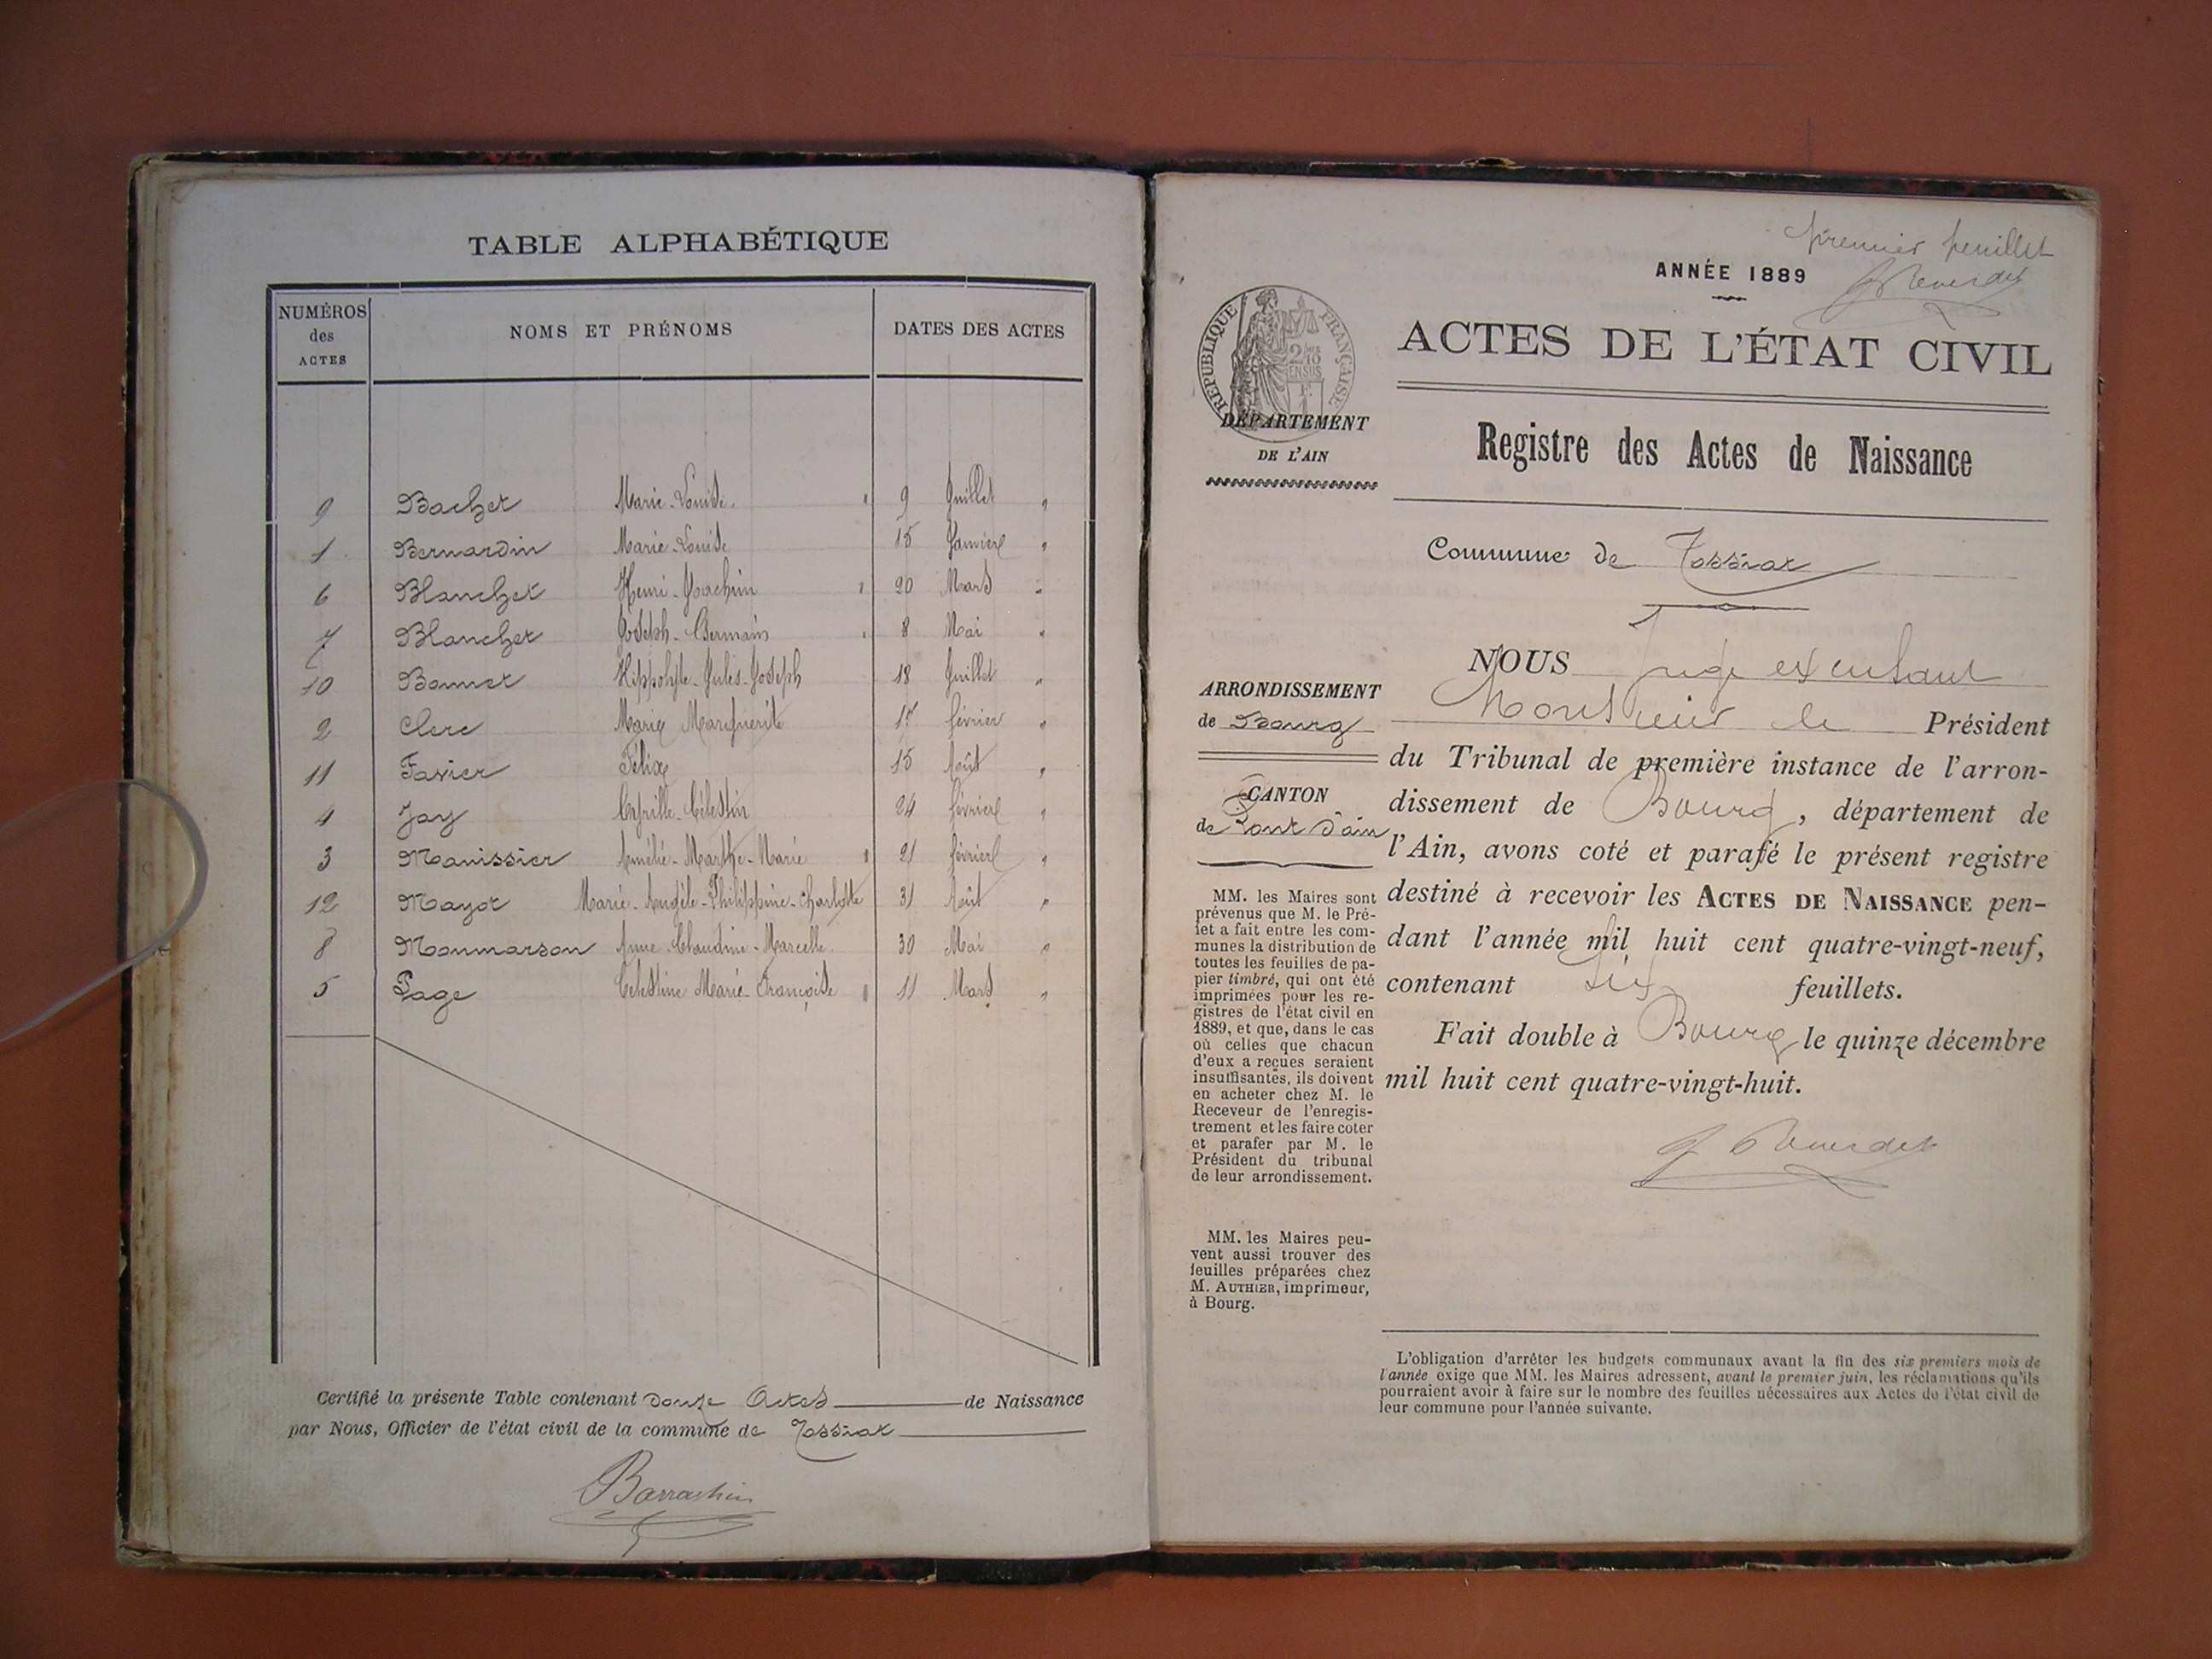 TABLE ALPHABÉTIQUE
NUMÉROS des ACTES NOMS ET PRÉNOMS DATES DES ACTES
9 Bachet Marie-Louise " 9 Juillet "
1 Bernardin Marie-Louise 15 Janvier "
6 Blanchet Henri-Joachim " 20 Mars "
7 Blanchet Joseph-Germain " 8 Mai "
10 Bonnet Hippolyte-Jules-Joseph 18 Juillet "
2 Clerc Marie Marguerite 17 février "
11 Favier Félix 15 Août "
4 Jay Cyrille-Célestin 24 février "
3 Manissier Amélie-Marthe-Marie " 21 février "
12 Mayot Marie-Angèle-Philippine-Charlotte 31 Août "
8 Monmarson Anne-Claudine-Marcelle 30 Mai "
5 Page Célestine Marie-Françoise " 11 Mars "
Certifié la présente Table contenant douze Actes de Naissance
par Nous, Officier de l'état civil de la commune de Tossiat
Barrachin
premier feuillet
ANNÉE 1889
RÉPUBLIQUE FRANÇAISE
ACTES DE L'ÉTAT CIVIL
DÉPARTEMENT
DE L'AIN
Registre des Actes de Naissance
Commune de Tossiat
ARRONDISSEMENT
de Bourg
CANTON
de Pont d'ain
MM. les Maires sont
prévenus que M. le Pré-
fet a fait entre les com-
munes la distribution de
toutes les feuilles de pa-
pier timbré, qui ont été
imprimées pour les re-
gistres de l'état civil en
1889, et que, dans le cas
où celles que chacun
d'eux a reçues seraient
insuffisantes, ils doivent
en acheter chez M. le
Receveur de l'enregis-
trement et les faire coter
et parafer par M. le
Président du tribunal
de leur arrondissement.
MM. les Maires peu-
vent aussi trouver des
feuilles préparées chez
M. AUTHIER, imprimeur,
à Bourg.
NOUS Juge
Monsieur le Président
du Tribunal de première instance de l'arron-
dissement de Bourg, département de
l'Ain, avons coté et parafé le présent registre
destiné à recevoir les ACTES DE NAISSANCE pen-
dant l'année mil huit cent quatre-vingt-neuf,
contenant six feuillets.
Fait double à Bourg le quinze décembre
mil huit cent quatre-vingt-huit.
L'obligation d'arrêter les budgets communaux avant la fin des six premiers mois de
l'année exige que MM. les Maires adressent, avant le premier juin, les réclamations qu'ils
pourraient avoir à faire sur le nombre des feuilles nécessaires aux Actes de l'état civil de
leur commune pour l'année suivante.